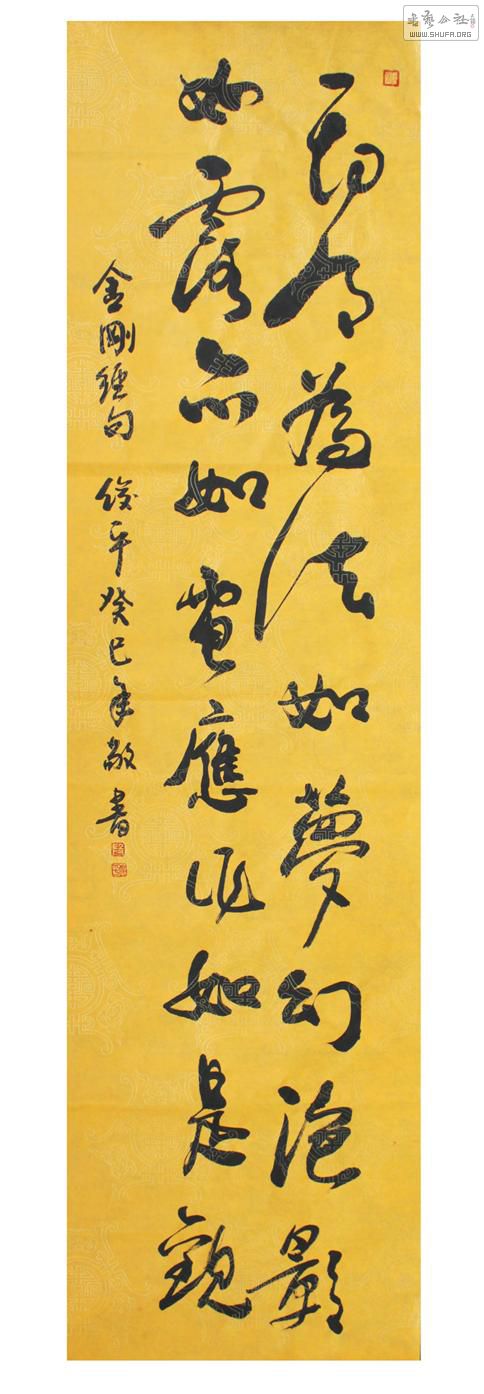 一切有為法如夢幻泡影
如露亦如電應作如是觀
金剛經句 俊平癸巳年敬書
書藝公社
WWW.SHUFA.ORG